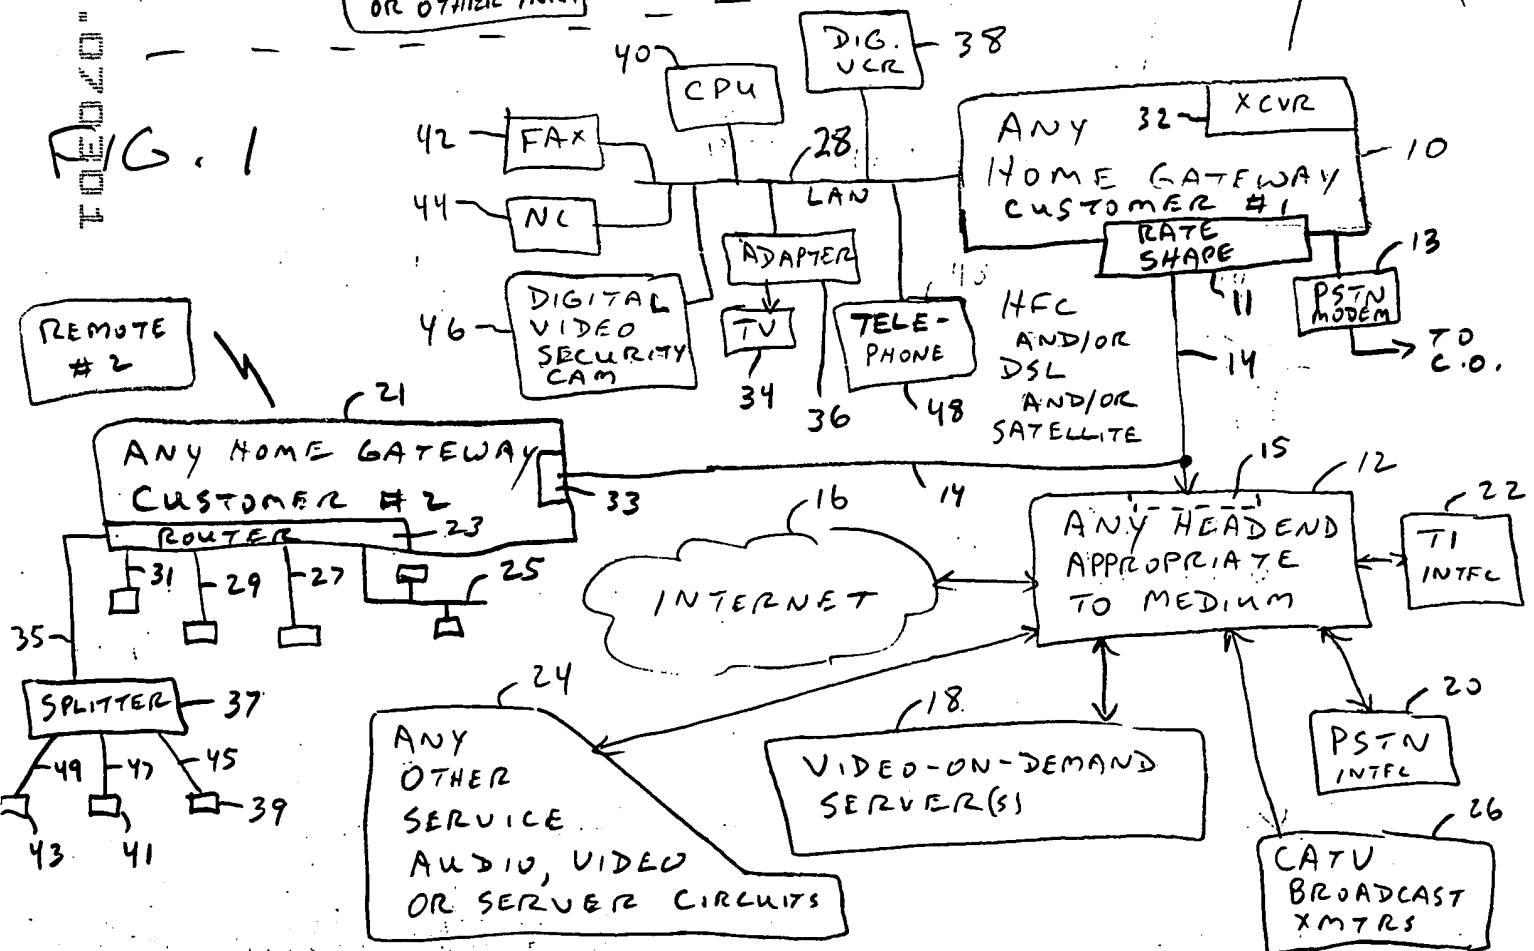 OR OTHER
FIG. 1
40
CPU
DIG.
VCR
38
42
FAX
28
LAN
44
NC
ANY
HOME GATEWAY
CUSTOMER # 1
32
XCVR
10
RATE
SHAPE
11
13
PSTN
MODEM
TO
C.O.
ADAPTER
TV
34
36
46
DIGITAL
VIDEO
SECURITY
CAM
TELE-
PHONE
48
HFC
AND/OR
DSL
AND/OR
SATELLITE
14
REMOTE
# 2
21
ANY HOME GATEWAY
CUSTOMER # 2
33
14
ROUTER
23
31
29
27
25
35
SPLITTER
37
49
47
45
43
41
39
16
INTERNET
15
12
ANY HEADEND
APPROPRIATE
TO MEDIUM
22
T1
INTFC
24
ANY
OTHER
SERVICE
AUDIO, VIDEO
OR SERVER CIRCUITS
18
VIDEO-ON-DEMAND
SERVER(S)
20
PSTN
INTFC
26
CATV
BROADCAST
XMTRS